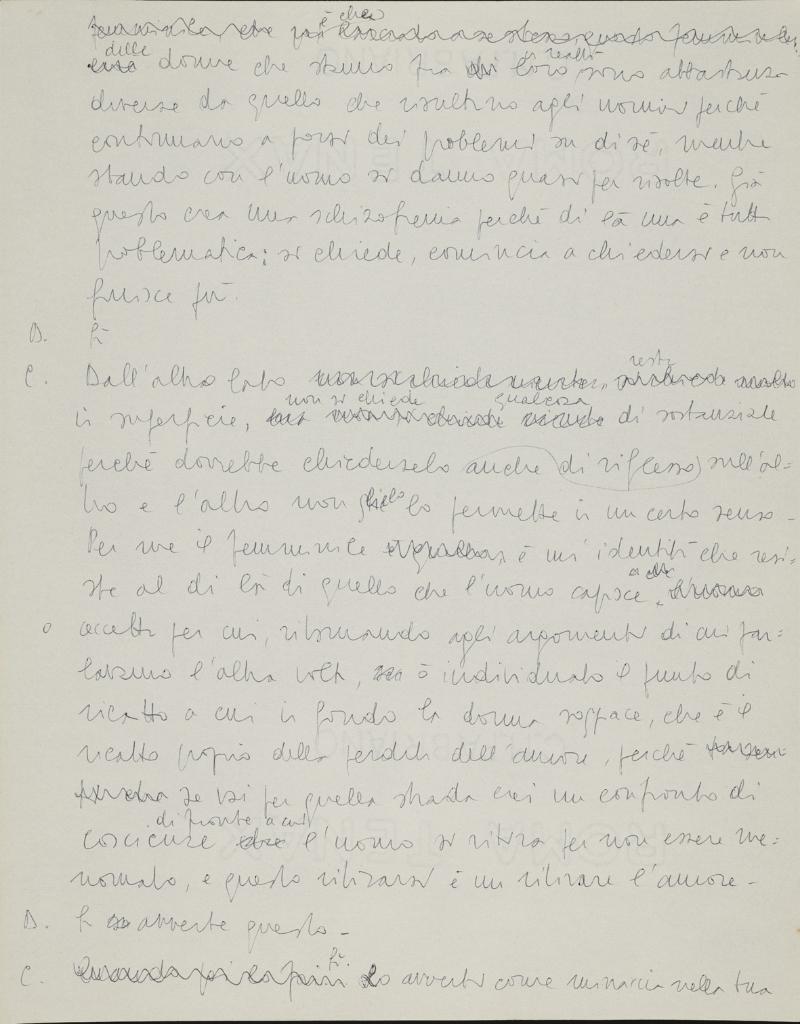 è che
delle donne che stanno fra di loro in realtà sono abbastanza
diverse da quello che risultino agli uomini perché
continuano a porsi dei problemi su di sé, mentre
stando con l'uomo si danno quasi per risolte. Già
questo crea una schizofrenia perché di là una è tutta
problematica: si chiede, comincia a chiedersi e non
finisce più.
D. Sì
C. Dall'altro lato resta
in superficie, non si chiede qualcosa di sostanziale
perché dovrebbe chiederselo anche di riflesso sull'al=
tro e l'altro non glielo permette in un certo senso.
Per me il femminile è un'identità che resi=
ste al di là di quello che l'uomo capisce e che
accetta per cui, ritornando agli argomenti di cui par=
lavamo l'altra volta, è individuato il punto di
ricatto a cui in fondo la donna soggiace, che è il
ricatto proprio della perdita dell'amore, perché
se vai per quella strada crei un confronto di
coscienze di fronte a cui l'uomo si ritira per non essere me=
nomato, e questo ritirarsi è un ritirare l'amore.
D. Si avverte questo.
C. Lo avverti come minaccia nella tua